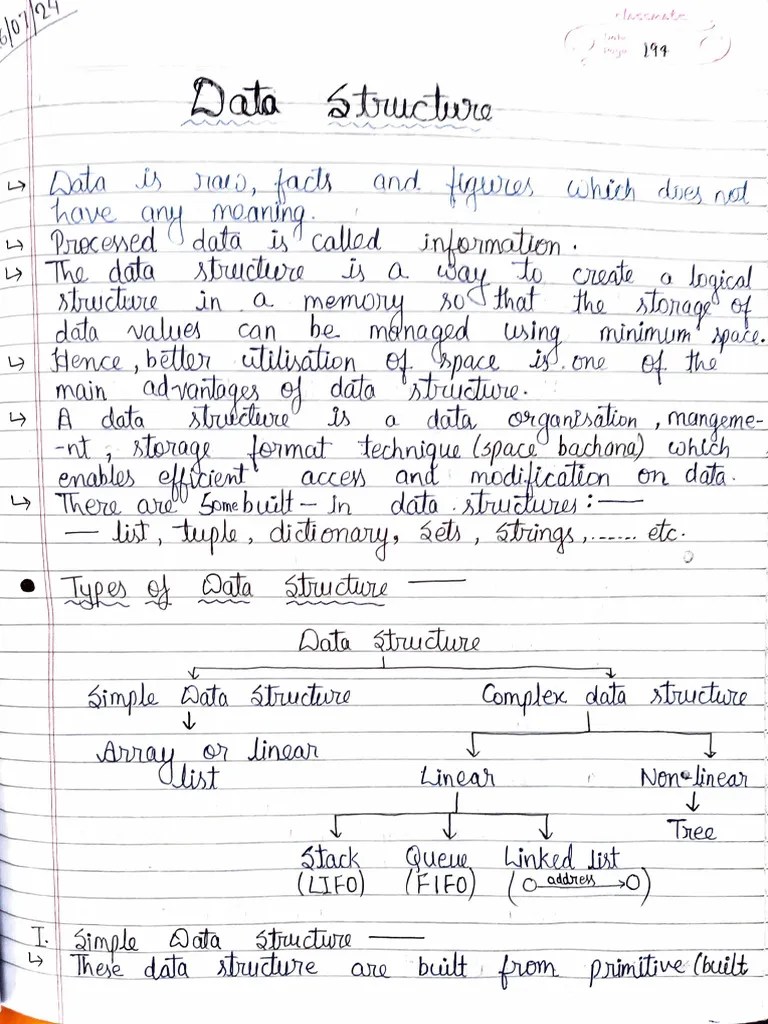 6/07/24
classmate
Date
Page 194
Data Structure
↳ Data is raw, facts and figures which does not
have any meaning.
↳ Processed data is called information.
↳ The data structure is a way to create a logical
structure in a memory so that the storage of
data values can be managed using minimum space.
↳ Hence, better utilisation of space is one of the
main advantages of data structure.
↳ A data structure is a data organisation, mangeme-
-nt, storage format technique (space bachana) which
enables efficient access and modification on data.
↳ There are some built-in data structures:—
— list, tuple, dictionary, sets, strings,...... etc.
● Types of Data Structure —
Data Structure
Simple Data Structure Complex data structure
Array or linear
list Linear Non-linear
Tree
Stack Queue Linked list
(LIFO) (FIFO) (O address O)
I. Simple Data Structure —
↳ These data structure are built from primitive (built